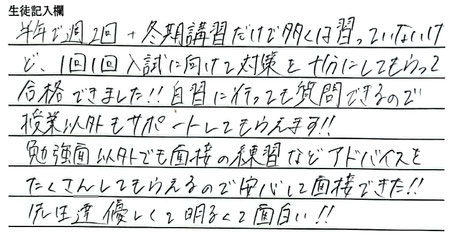 生徒記入欄
半年で週2回 + 冬期講習だけで多くは習っていないけ
ど、1回1回入試に向けて対策を十分にしてもらって
合格できました!!自習に行っても質問できるので
授業以外もサポートしてもらえます!!
勉強面以外でも面接の練習などアドバイスを
たくさんしてもらえるので安心して面接できた!!
先生達優しくて明るくて面白い!!